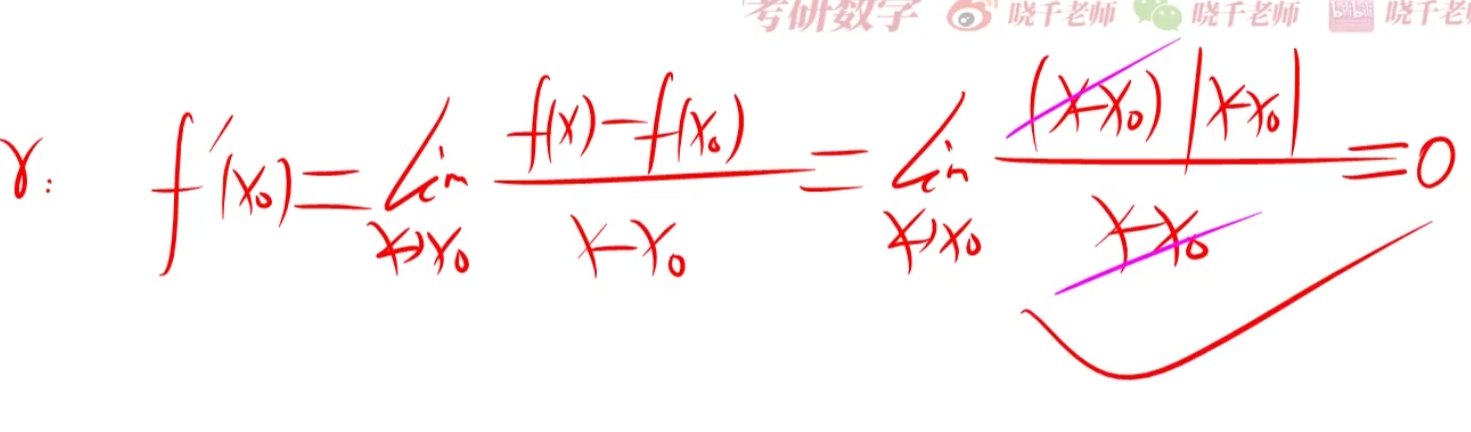 考研数学 晓千老师 晓千老师 bilibili 晓千老
γ: f′(x₀)=lim x→x₀ (f(x)−f(x₀))/(x−x₀) = lim x→x₀ ((x−x₀)|x−x₀|)/(x−x₀) =0